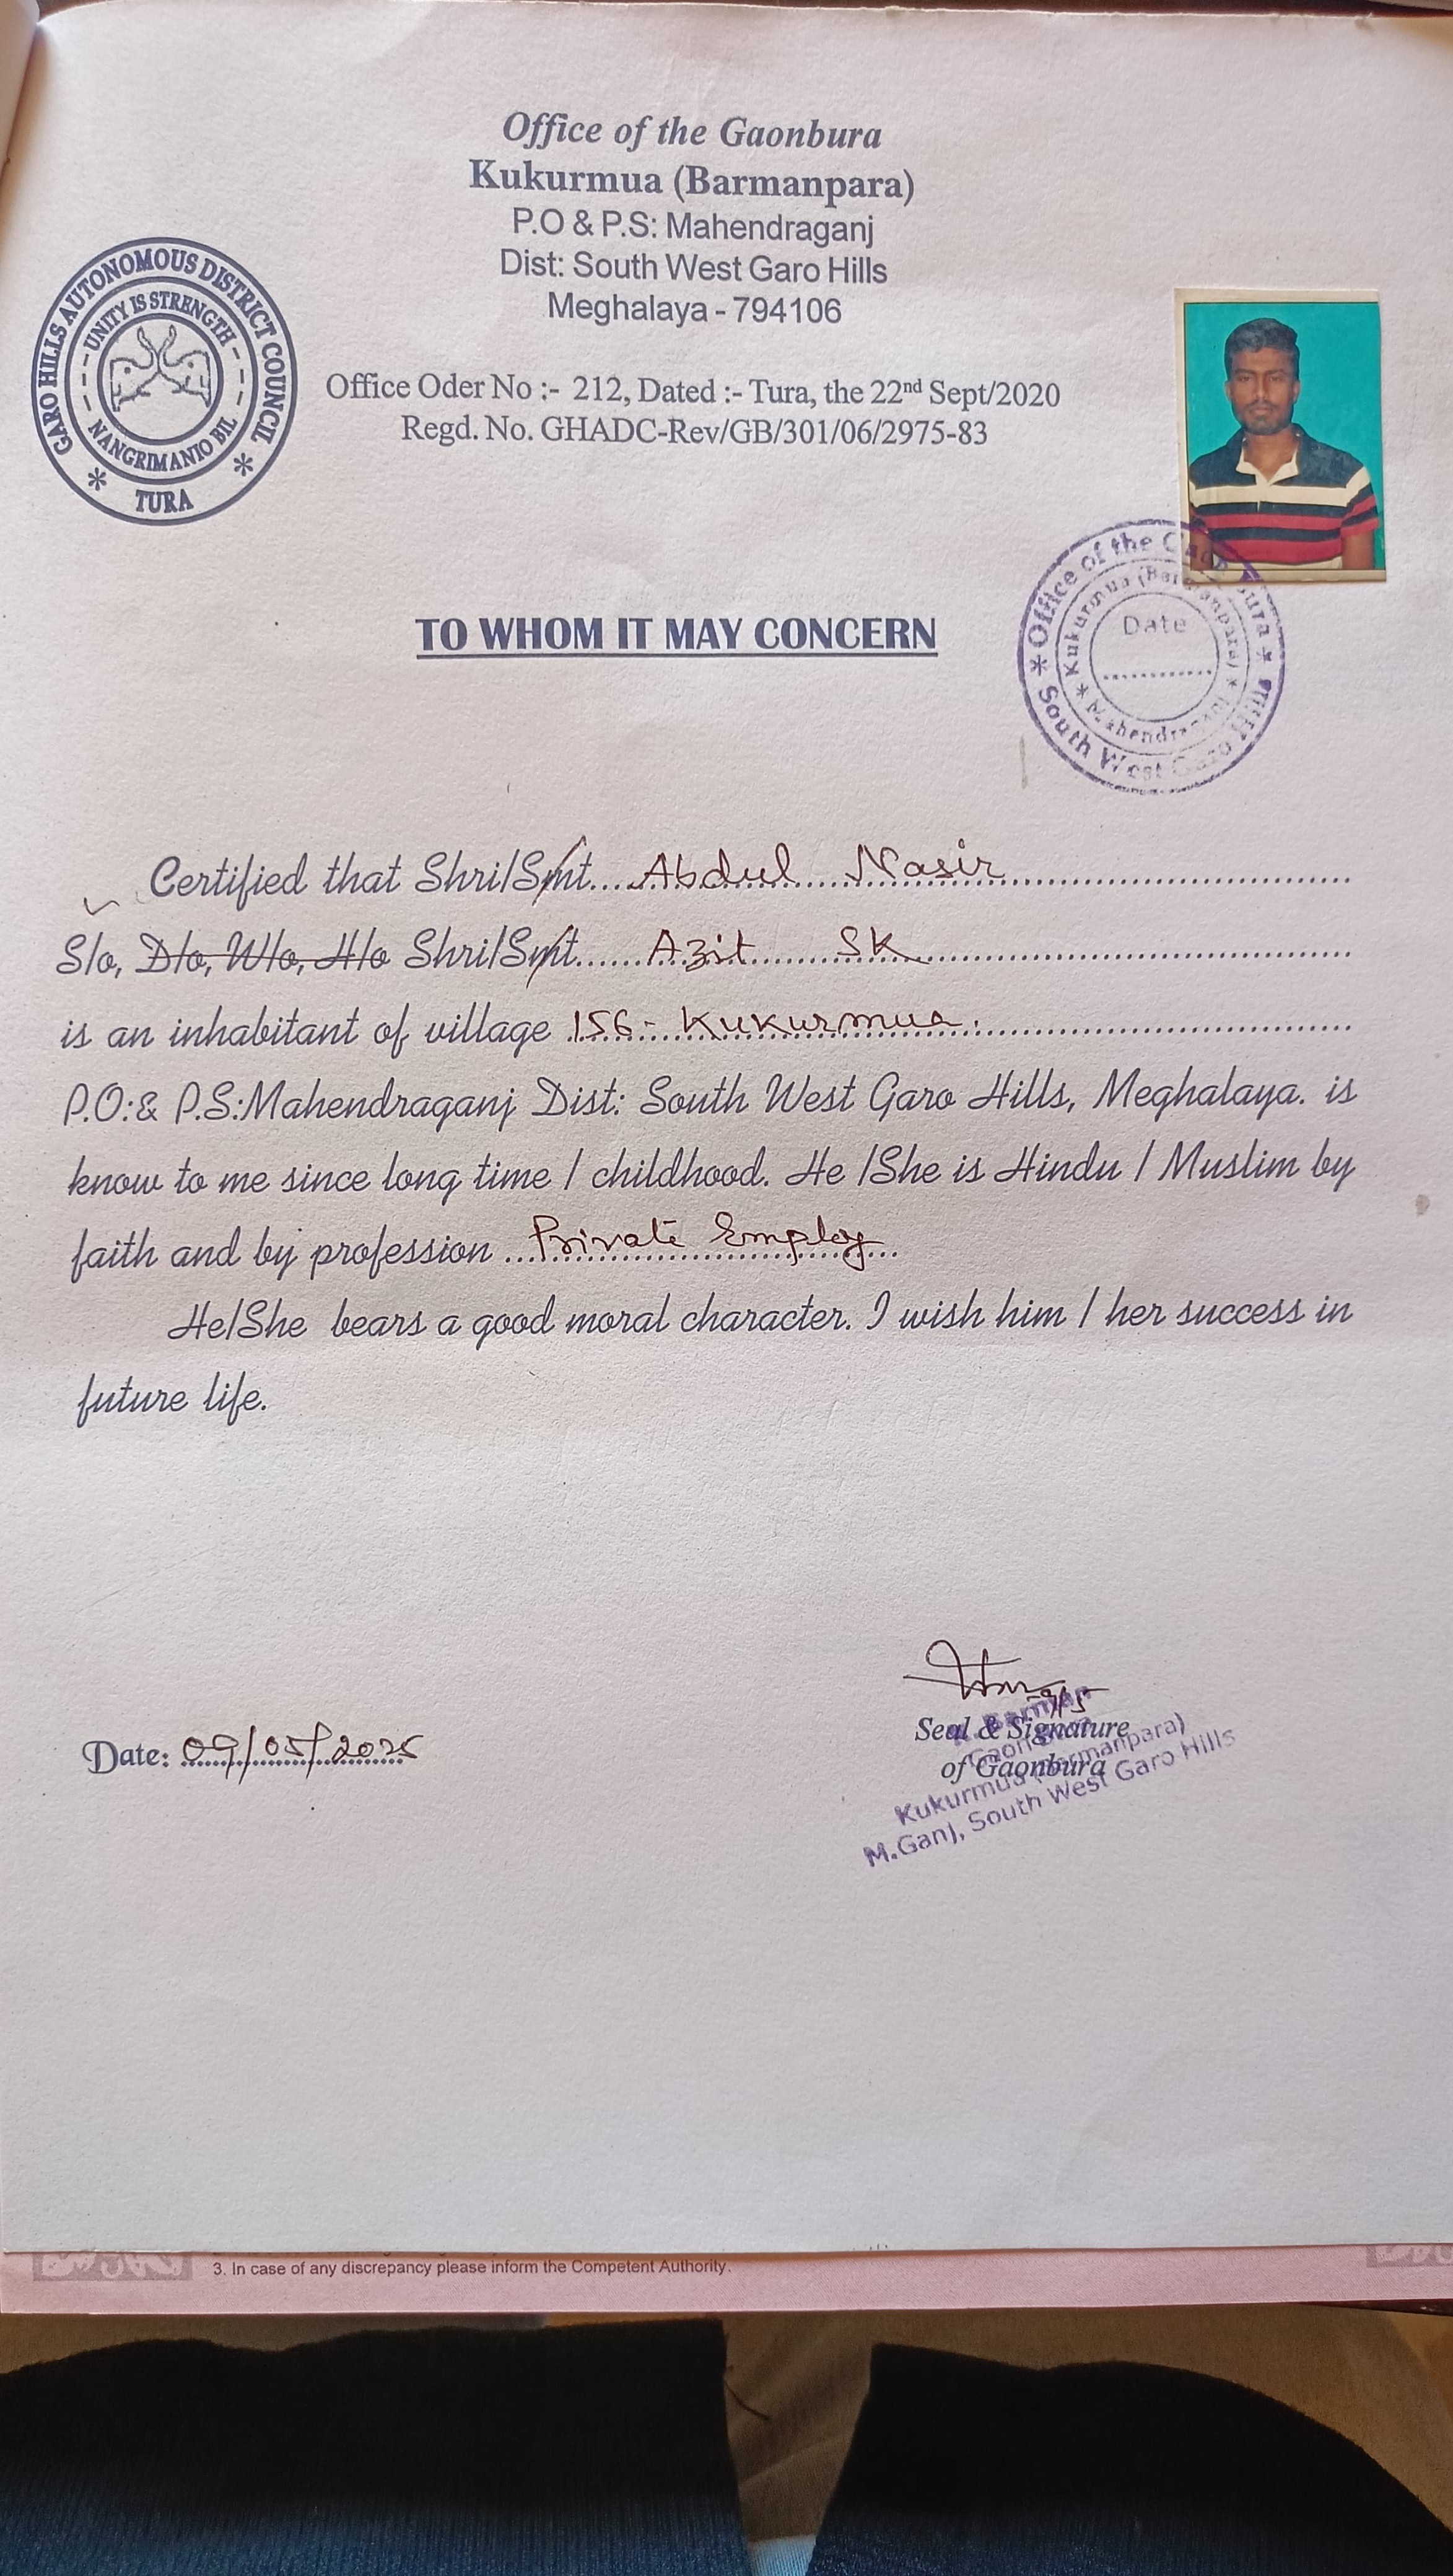 Office of the Gaonbura
Kukurmua (Barmanpara)
P.O & P.S: Mahendraganj
Dist: South West Garo Hills
Meghalaya - 794106
GARO HILLS AUTONOMOUS DISTRICT COUNCIL
UNITY IS STRENGTH
NANGRIMANIO BIL
* TURA *
Office Oder No :- 212, Dated :- Tura, the 22nd Sept/2020
Regd. No. GHADC-Rev/GB/301/06/2975-83
Office of the Gaonbura
Kukurmua (Barmanpara)
Date
* Mahendraganj *
* South West Garo Hills *
TO WHOM IT MAY CONCERN
Certified that Shri/Smt....Abdul Nasir
S/o, D/o, W/o, H/o Shri/Smt......Azit SK
is an inhabitant of village 156- Kukurmua.
P.O:& P.S:Mahendraganj Dist: South West Garo Hills, Meghalaya. is
know to me since long time / childhood. He /She is Hindu / Muslim by
faith and by profession ...Private Employ...
He/She bears a good moral character. I wish him / her success in
future life.
9/5
Date: 09/05/2025
Seal & Signature
of Gaonbura
Barman
Gaonbura
Kukurmua (Barmanpara)
M.Ganj, South West Garo Hills
3. In case of any discrepancy please inform the Competent Authority.